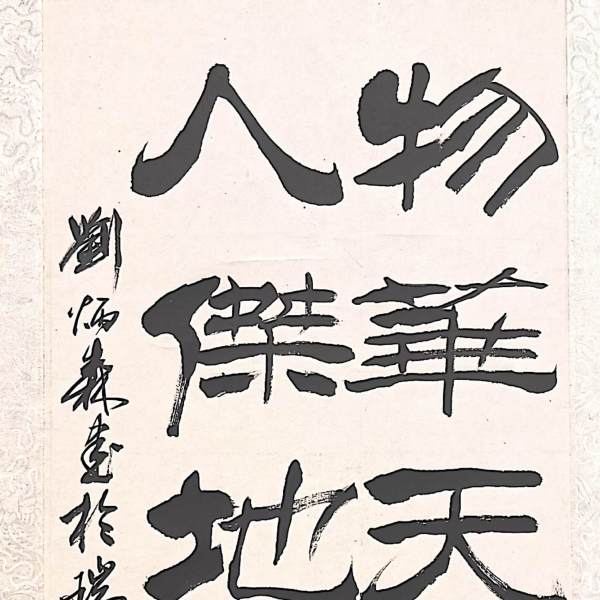 物華天
人傑地
劉炳森書於瑞